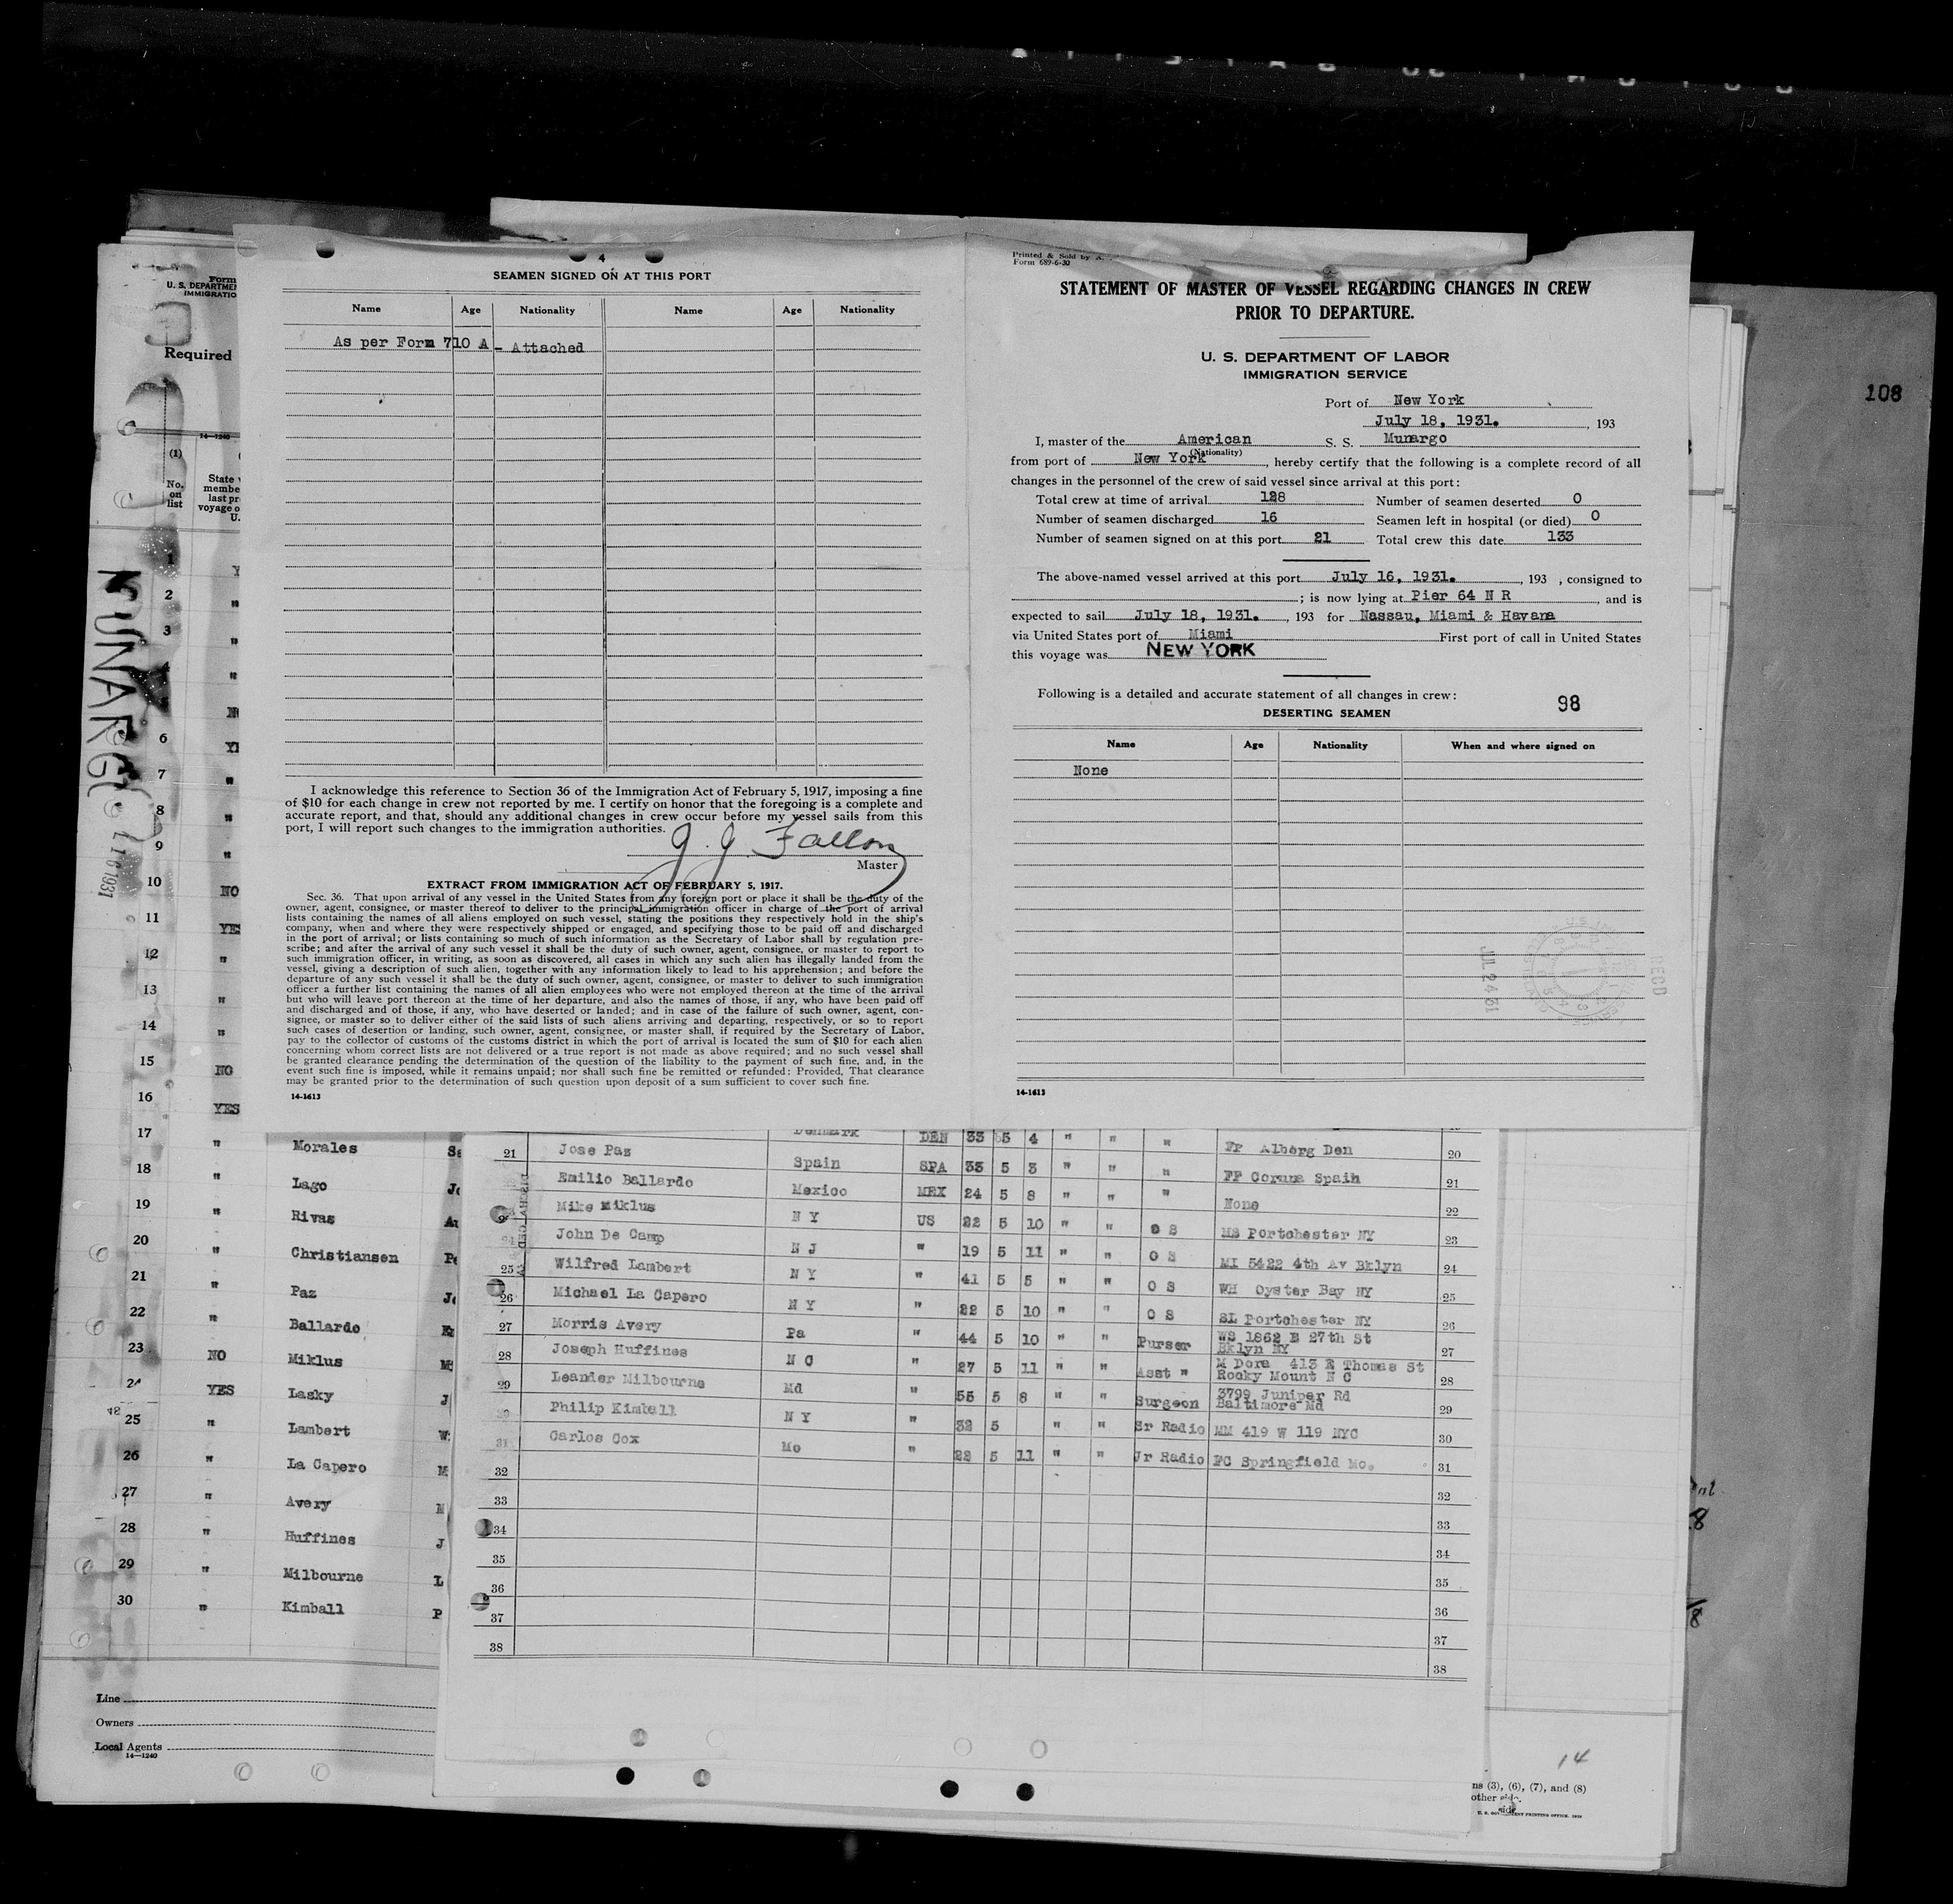 108
4
SEAMEN SIGNED ON AT THIS PORT
Name Age Nationality Name Age Nationality
As per Form 710 A - Attached
I acknowledge this reference to Section 36 of the Immigration Act of February 5, 1917, imposing a fine
of $10 for each change in crew not reported by me. I certify on honor that the foregoing is a complete and
accurate report, and that, should any additional changes in crew occur before my vessel sails from this
port, I will report such changes to the immigration authorities.
J. J. Fallon
Master
EXTRACT FROM IMMIGRATION ACT OF FEBRUARY 5, 1917.
Sec. 36. That upon arrival of any vessel in the United States from any foreign port or place it shall be the duty of the
owner, agent, consignee, or master thereof to deliver to the principal immigration officer in charge of the port of arrival
lists containing the names of all aliens employed on such vessel, stating the positions they respectively hold in the ship's
company, when and where they were respectively shipped or engaged, and specifying those to be paid off and discharged
in the port of arrival; or lists containing so much of such information as the Secretary of Labor shall by regulation pre-
scribe; and after the arrival of any such vessel it shall be the duty of such owner, agent, consignee, or master to report to
such immigration officer, in writing, as soon as discovered, all cases in which any such alien has illegally landed from the
vessel, giving a description of such alien, together with any information likely to lead to his apprehension; and before the
departure of any such vessel it shall be the duty of such owner, agent, consignee, or master to deliver to such immigration
officer a further list containing the names of all alien employees who were not employed thereon at the time of the arrival
but who will leave port thereon at the time of her departure, and also the names of those, if any, who have been paid off
and discharged and of those, if any, who have deserted or landed; and in case of the failure of such owner, agent, con-
signee, or master so to deliver either of the said lists of such aliens arriving and departing, respectively, or so to report
such cases of desertion or landing, such owner, agent, consignee, or master shall, if required by the Secretary of Labor,
pay to the collector of customs of the customs district in which the port of arrival is located the sum of $10 for each alien
concerning whom correct lists are not delivered or a true report is not made as above required; and no such vessel shall
be granted clearance pending the determination of the question of the liability to the payment of such fine, and, in the
event such fine is imposed, while it remains unpaid; nor shall such fine be remitted or refunded: Provided, That clearance
may be granted prior to the determination of such question upon deposit of a sum sufficient to cover such fine.
14-1613
Printed & Sold by A.
Form 689-6-30
STATEMENT OF MASTER OF VESSEL REGARDING CHANGES IN CREW
PRIOR TO DEPARTURE.
U. S. DEPARTMENT OF LABOR
IMMIGRATION SERVICE
Port of New York
July 18, 1931. , 193
I, master of the American S. S. Munargo
(Nationality)
from port of New York , hereby certify that the following is a complete record of all
changes in the personnel of the crew of said vessel since arrival at this port:
Total crew at time of arrival 128 Number of seamen deserted 0
Number of seamen discharged 16 Seamen left in hospital (or died) 0
Number of seamen signed on at this port 21 Total crew this date 133
The above-named vessel arrived at this port July 16, 1931. , 193 , consigned to
; is now lying at Pier 64 N R , and is
expected to sail July 18, 1931. , 193 for Nassau, Miami & Havana
via United States port of Miami First port of call in United States
this voyage was NEW YORK
Following is a detailed and accurate statement of all changes in crew:
98
DESERTING SEAMEN
Name Age Nationality When and where signed on
None
JUL 24 31
REC'D
14-1613
Form
U. S. DEPARTME
IMMIGRATIO
Required
14—1240
(1)
No. on list
State
membe
last pr
voyage o
U.
MUNARGO
16 1931
1 Y
2 "
3 "
4 "
5 N
6 YE
7 "
8 "
9 "
10 NO
11 YES
12 "
13 "
14 "
15 NO
16 YES
17 " Morales Sa
18 " Lago Jo
19 " Rivas Au
20 " Christiansen Pe
21 " Paz Jo
22 " Ballardo Em
23 NO Miklus Mi
24 YES Lasky J
25 " Lambert W
26 " La Capero M
27 " Avery M
28 " Huffines J
29 " Milbourne L
30 " Kimball P
Line
Owners
Local Agents
14—1240
Denmark DEN 33 5 4 " " " FF Alborg Den 20
21 Jose Paz Spain SPA 33 5 3 " " " FF Coruna Spain 21
Emilio Ballardo Mexico MEX 24 5 8 " " " None 22
Mike Miklus N Y US 22 5 10 " " O S MS Portchester NY 23
24 John De Camp N J " 19 5 11 " " O S MI 5422 4th Av Bklyn 24
25 Wilfred Lambert N Y " 41 5 5 " " O S WH Oyster Bay NY 25
26 Michael La Capero N Y " 22 5 10 " " O S SL Portchester NY 26
27 Morris Avery Pa " 44 5 10 " " Purser WS 1862 E 27th St Bklyn NY 27
28 Joseph Huffines N C " 27 5 11 " " Asst " M Dora 413 E Thomas St Rocky Mount N C 28
29 Leander Milbourne Md " 55 5 8 " " Surgeon 3799 Juniper Rd Baltimore Md 29
30 Philip Kimball N Y " 32 5 " " Sr Radio MM 419 W 119 NYC 30
31 Carlos Cox Mo " 22 5 11 " " Jr Radio FC Springfield Mo. 31
32 32
33 33
34 34
35 35
36 36
37 37
38 38
14
ns (3), (6), (7), and (8)
other side.